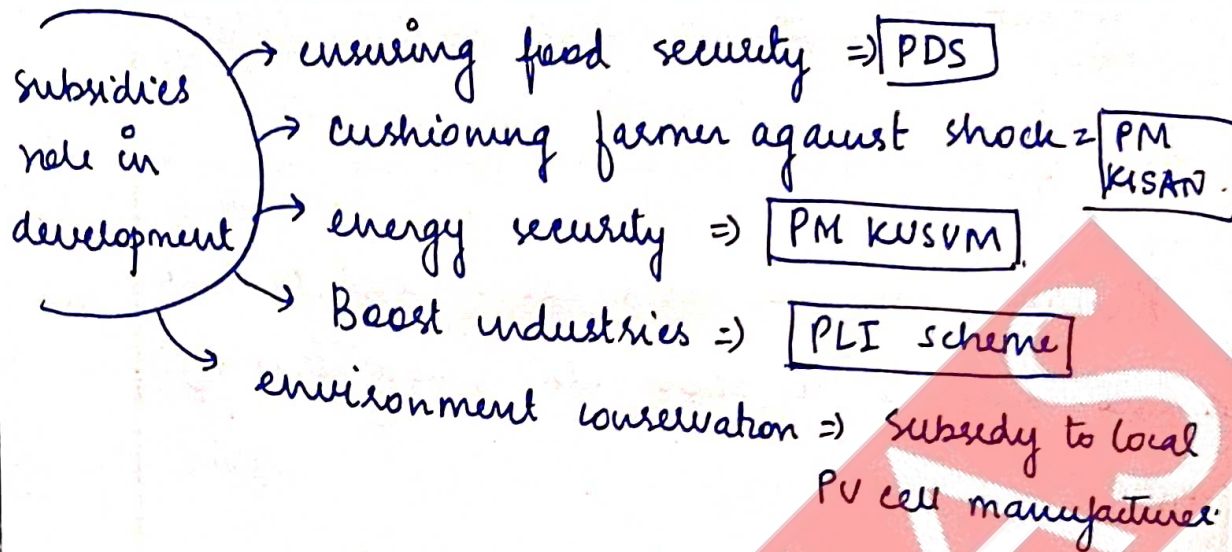 subsidies
role in
development
→ ensuring food security ⇒ PDS
→ cushioning farmer against shock = PM
KISAN.
→ energy security ⇒ PM KUSUM
→ Boost industries ⇒ PLI scheme
→ environment conservation ⇒ Subsedy to local
PV cell manufacturer.